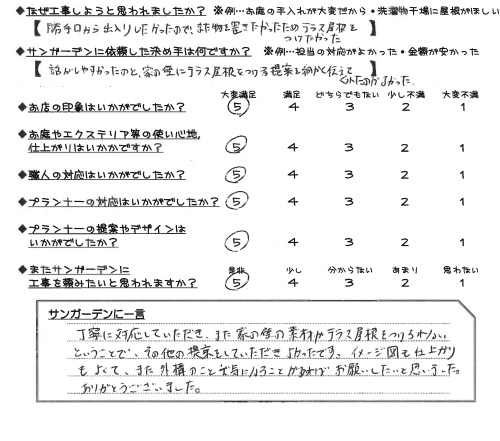 ◆なぜ工事しようと思われましたか？ ※例…お庭の手入れが大変だから・洗濯物干場に屋根がほしい
【 勝手口から出入りしたかったので、また物を置きたかったためテラス屋根を
つけたかった 】
◆サンガーデンに依頼した決め手は何ですか？ ※例…担当の対応がよかった・金額が安かった
【 話がしやすかったのと、家の壁にテラス屋根をつける提案を細かく伝えて
くれたのがよかった。 】
大変満足 満足 どちらでもない 少し不満 大変不満
◆お店の印象はいかがでしたか？ 5 4 3 2 1
◆お庭やエクステリア等の使い心地、
仕上がりはいかがですか？ 5 4 3 2 1
◆職人の対応はいかがでしたか？ 5 4 3 2 1
◆プランナーの対応はいかがでしたか？ 5 4 3 2 1
◆プランナーの提案やデザインは
いかがでしたか？ 5 4 3 2 1
是非 少し 分からない あまり 思わない
◆またサンガーデンに
工事を頼みたいと思われますか？ 5 4 3 2 1
サンガーデンに一言
丁寧に対応していただき、また家の壁の素材がテラス屋根をつけられない
ということで、その他の提案をしていただきよかったです。イメージ図も仕上がり
もよくて、また外構のこと気になることがあればお願いしたいと思いました。
ありがとうございました。